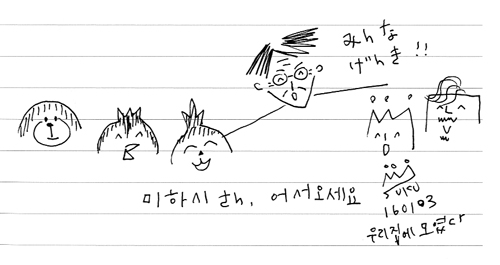 みんな
げんき!!
미하시 한, 어서오세요
suku
160103
우리집에 모였다